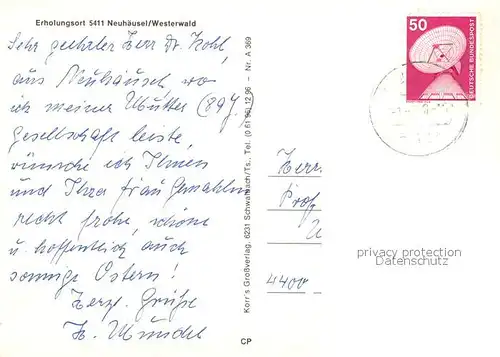 Erholungsort 5411 Neuhäusel/Westerwald
Sehr geehrter Herr Dr. Kohl,
aus Neuhäusel, wo
ich meiner Mutter (89 J.)
Gesellschaft leiste,
wünsche ich Ihnen
und Ihrer Frau Gemahlin
recht frohe, schöne
u. hoffentlich auch
sonnige Ostern!
Herzl. Grüße
CP
Korr's Großverlag, 6231 Schwalbach/Ts., Tel. (0 61 96) 12 96 - Nr. A 369
50
DEUTSCHE BUNDESPOST
Herrn
Prof
4400
privacy protection
Datenschutz